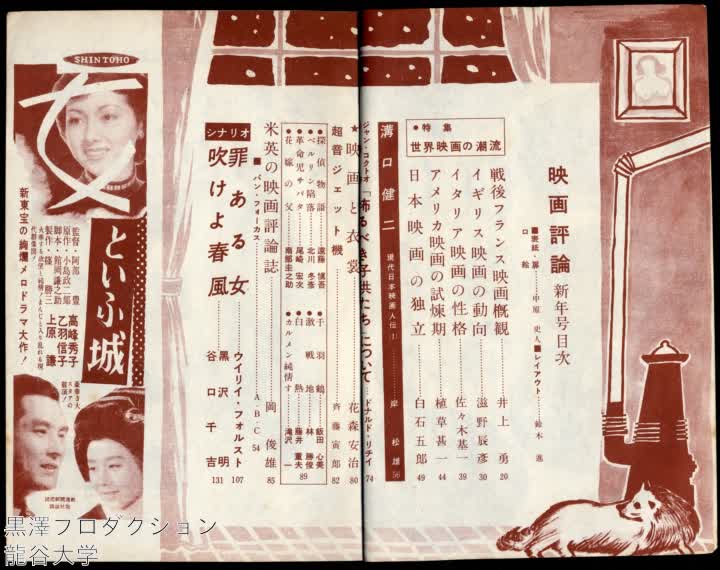 映画評論 新年号目次
■表紙・扉・ロ絵 中原史人 ■レイアウト 鈴木進
●特集
世界映画の潮流
戦後フランス映画概観 井上勇 20
イギリス映画の動向 滋野辰彦 30
イタリア映画の性格 佐々木基一 39
アメリカ映画の試煉期 植草甚一 44
日本映画の独立 白石五郎 49
溝口健二 現代日本映画人伝1 岸松雄 56
ジャン・コクトオ「怖るべき子供たち」について ドナルド・リチイ 74
★映画と衣裳 花森安治 80
超音ジェット機 斉藤寅郎 82
●探偵物語 遠藤慎吾
●ベルリン陥落 北川冬彦
●革命児サパタ 尾崎宏次
●花嫁の父 南部圭之助
●千羽鶴 飯田心美
●激戦地 林勝俊
●白熱 藤井重夫
●カルメン純情す 滝沢一
89
米英の映画評論誌 岡俊雄 85
■パン・フォーカス A・B・C 54
シナリオ
罪ある女 ウイリイ・フォルスト 107
吹けよ春風 黒沢明 谷口千吉 131
SHINTOHO
女といふ城
監督・阿部豊
原作・小島政二郎
脚本・館岡謙之助
製作・篠勝三
高峰秀子
乙羽信子
上原謙
新東宝の絢爛メロドラマ大作!
黒澤プロダクション
龍谷大学